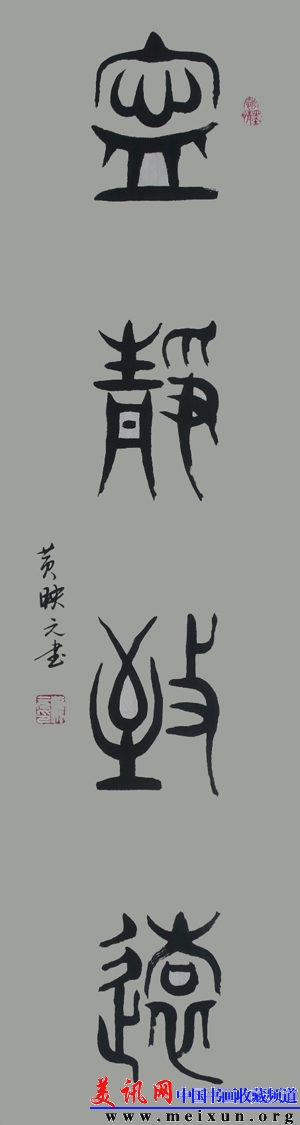 寧靜致遠
黄映元书
美讯网 中国书画收藏频道
www.meixun.org